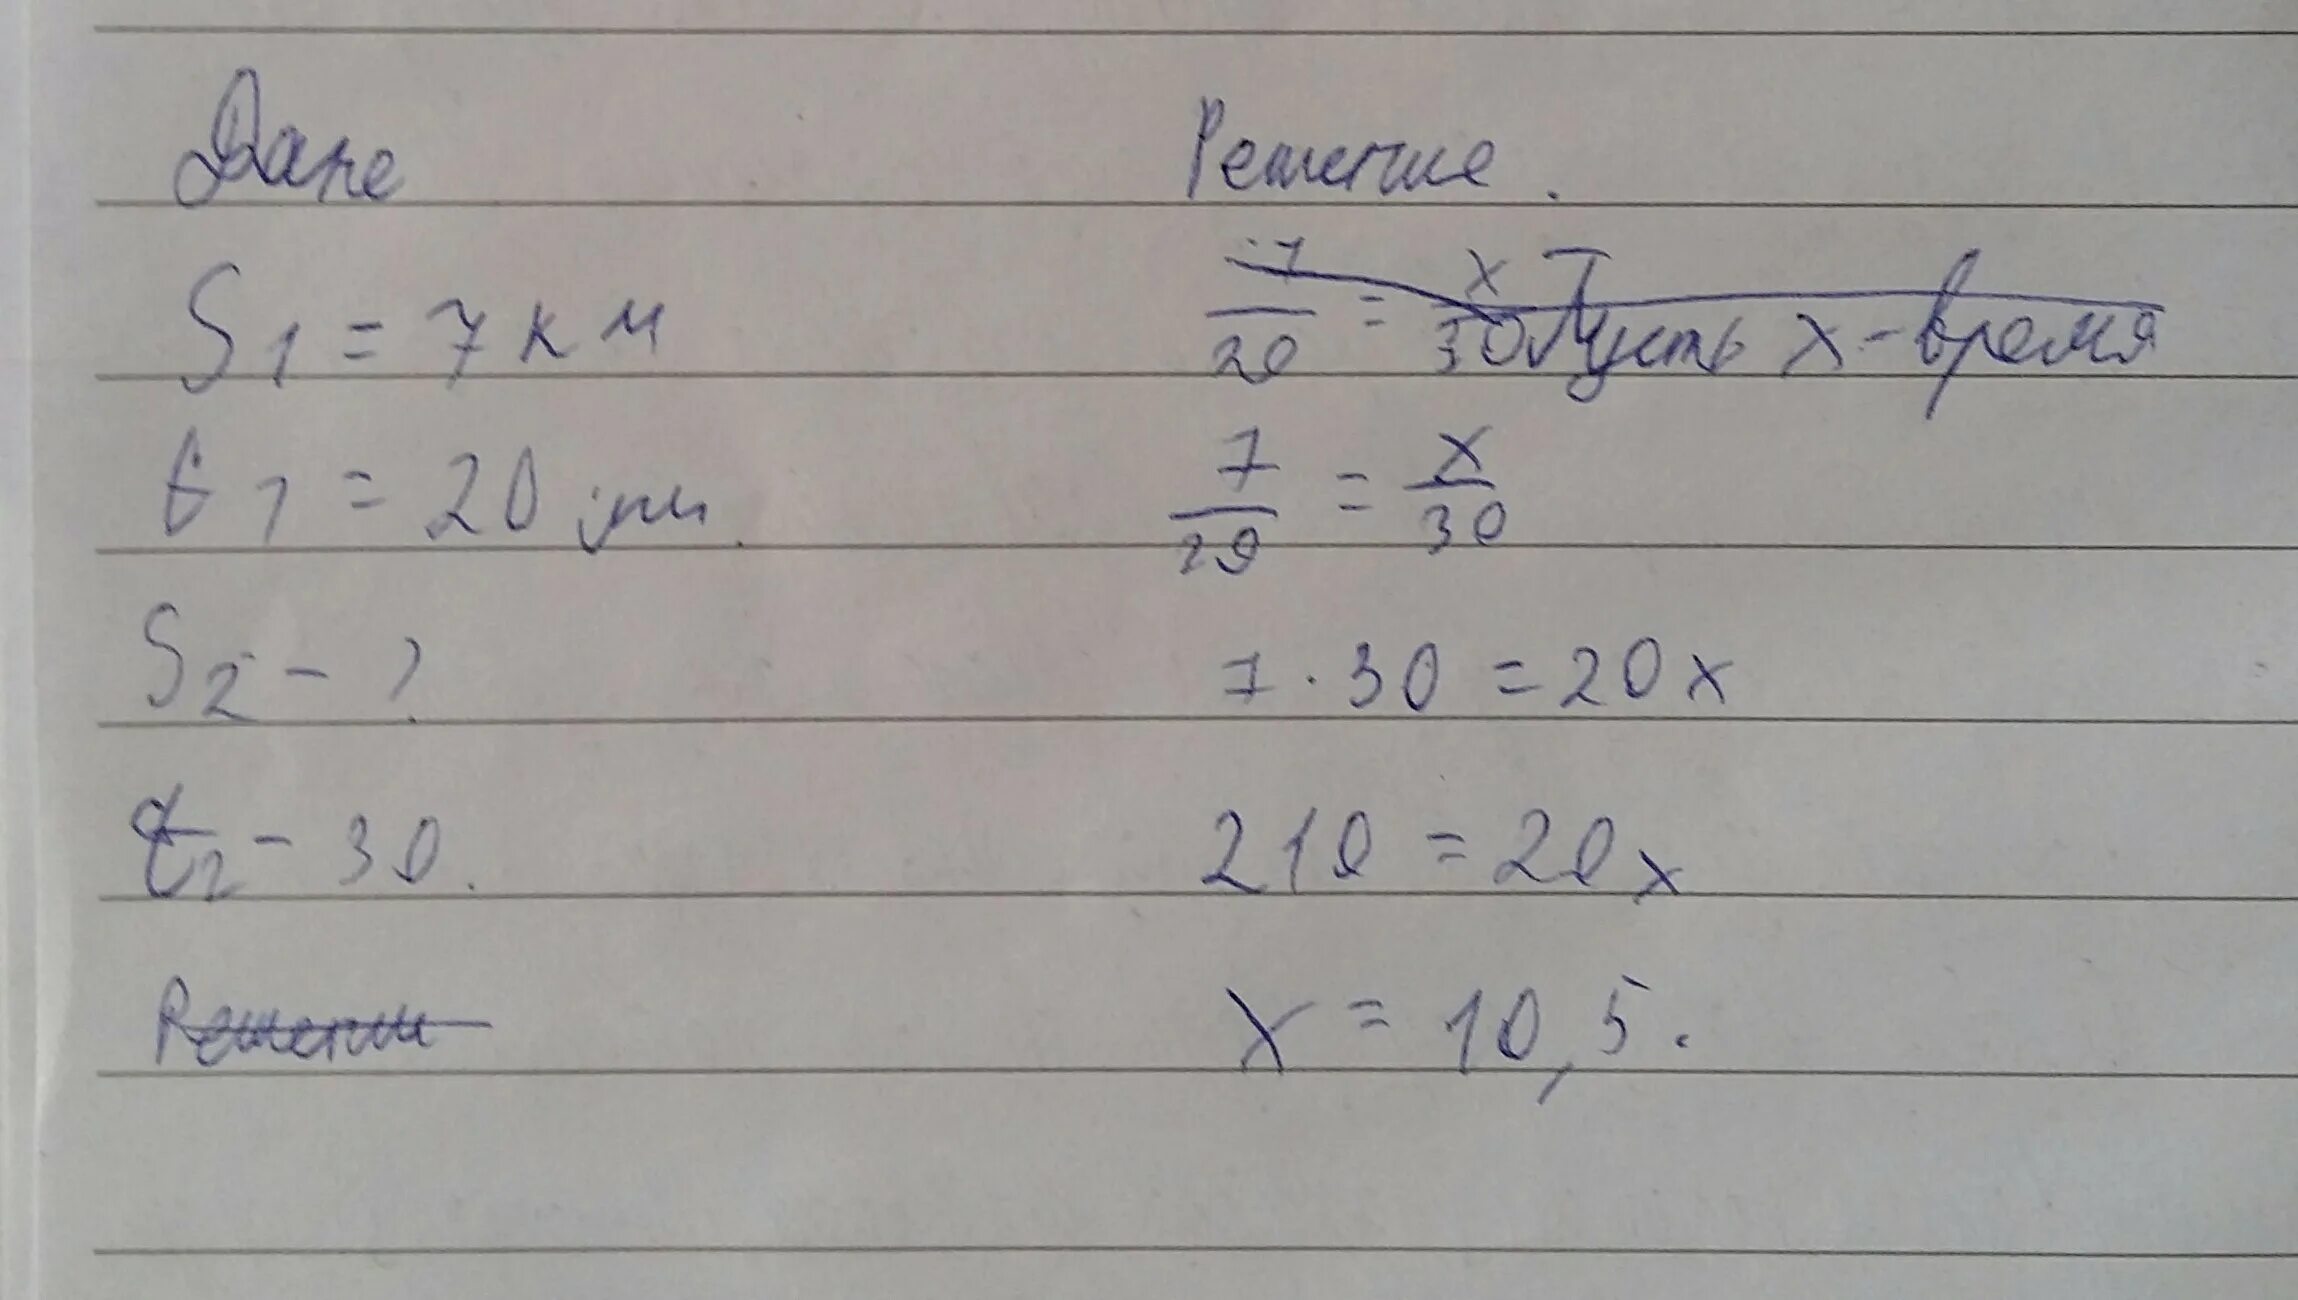 Дано
S1 = 7 км
t1 = 20 мин.
S2 - ?
t2 - 30.
Решение
Решение.
7/20 = x/30 Пусть x - время
7/20 = x/30
7 · 30 = 20x
210 = 20x
x = 10,5.